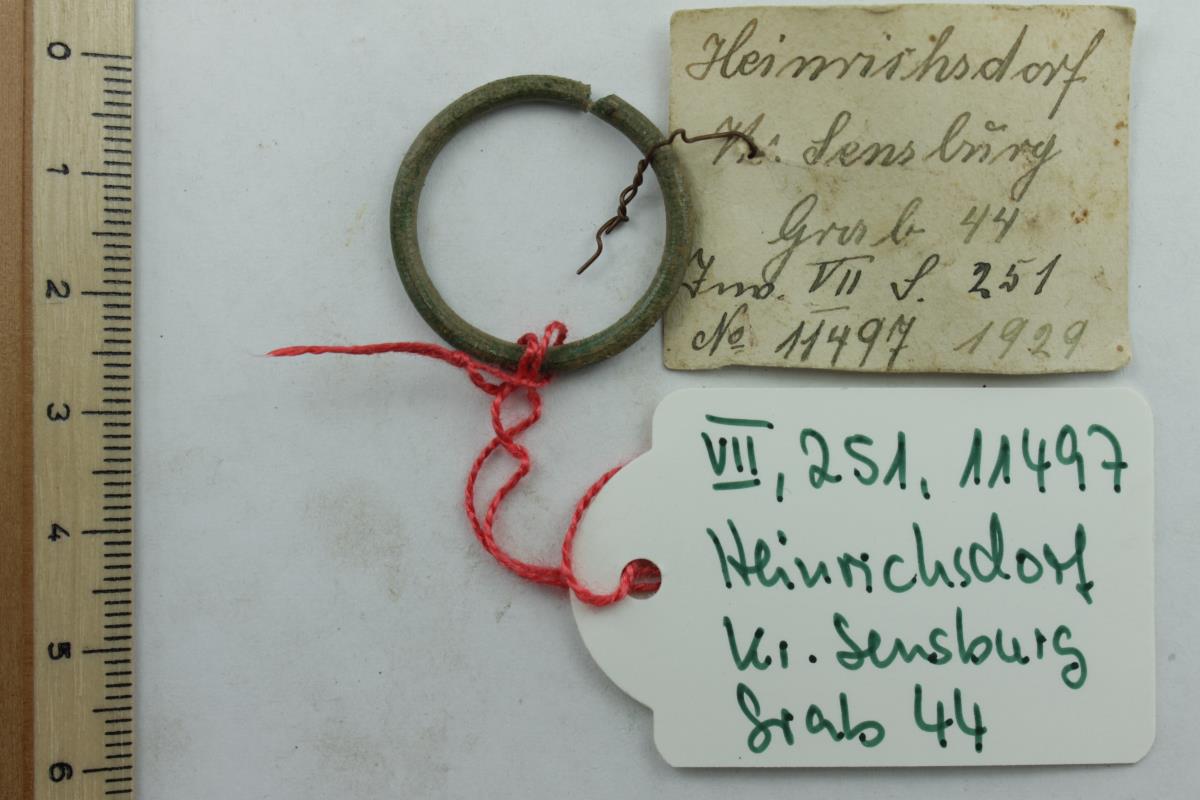 0
1
2
3
4
5
6
Heinrichsdorf
Kr. Sensbŭrg
Grab 44
Inv. VII S. 251
No 11497 1929
VII, 251, 11497
Heinrichsdorf
Kr. Sensburg
Grab 44